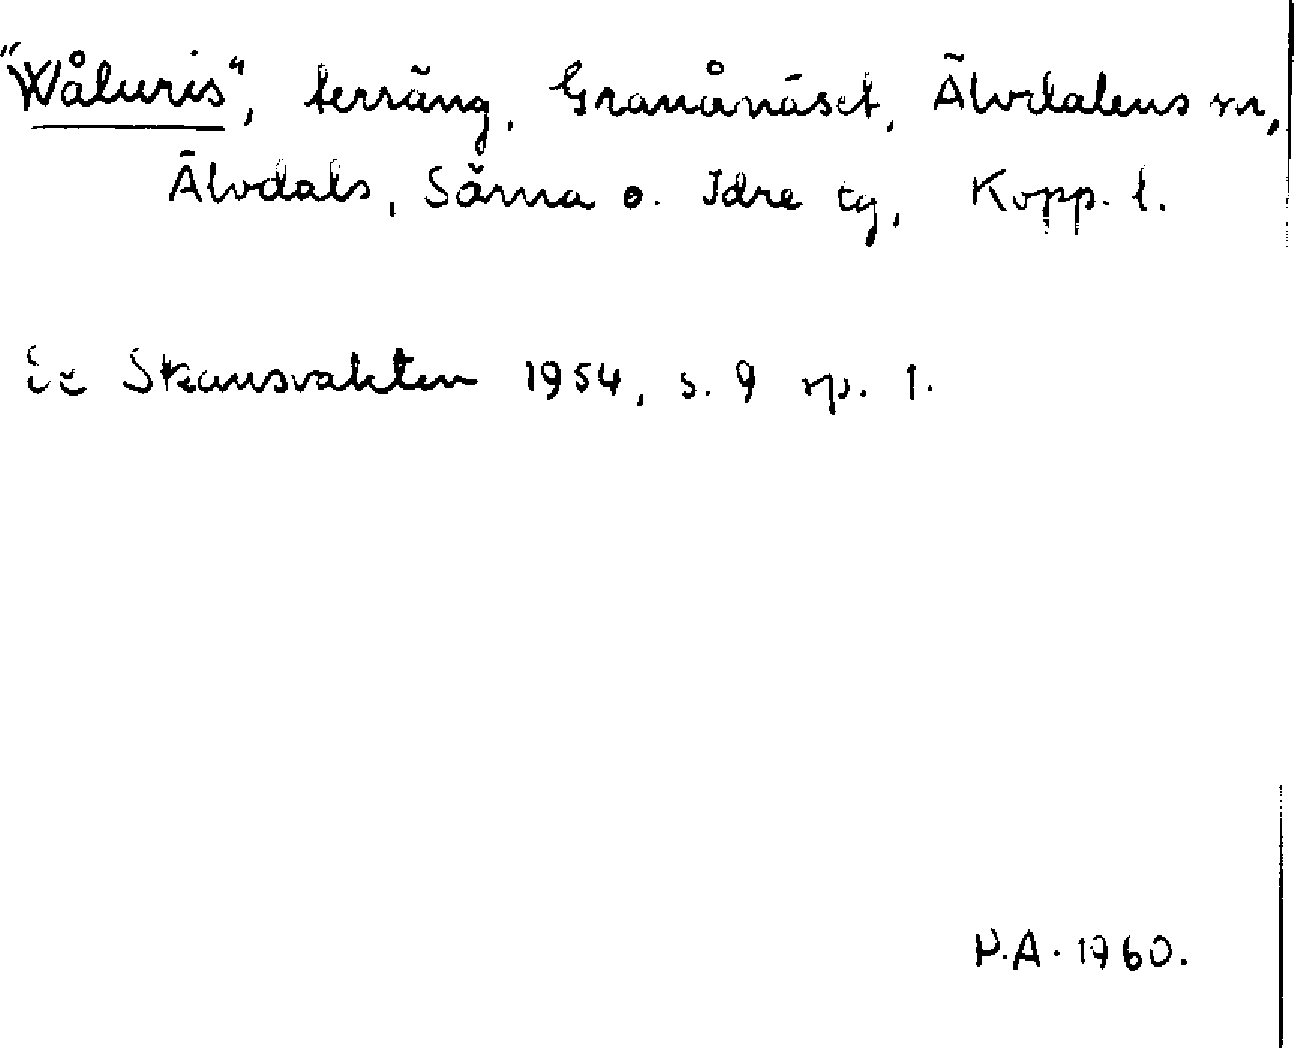 "Wåluris", terräng, Granånäset, Älvdalens sn,
Älvdals, Särna o. Idre tg, Kopp. l.
Se Skansvakten 1954, s. 9 sp. 1.
P.A. 1960.